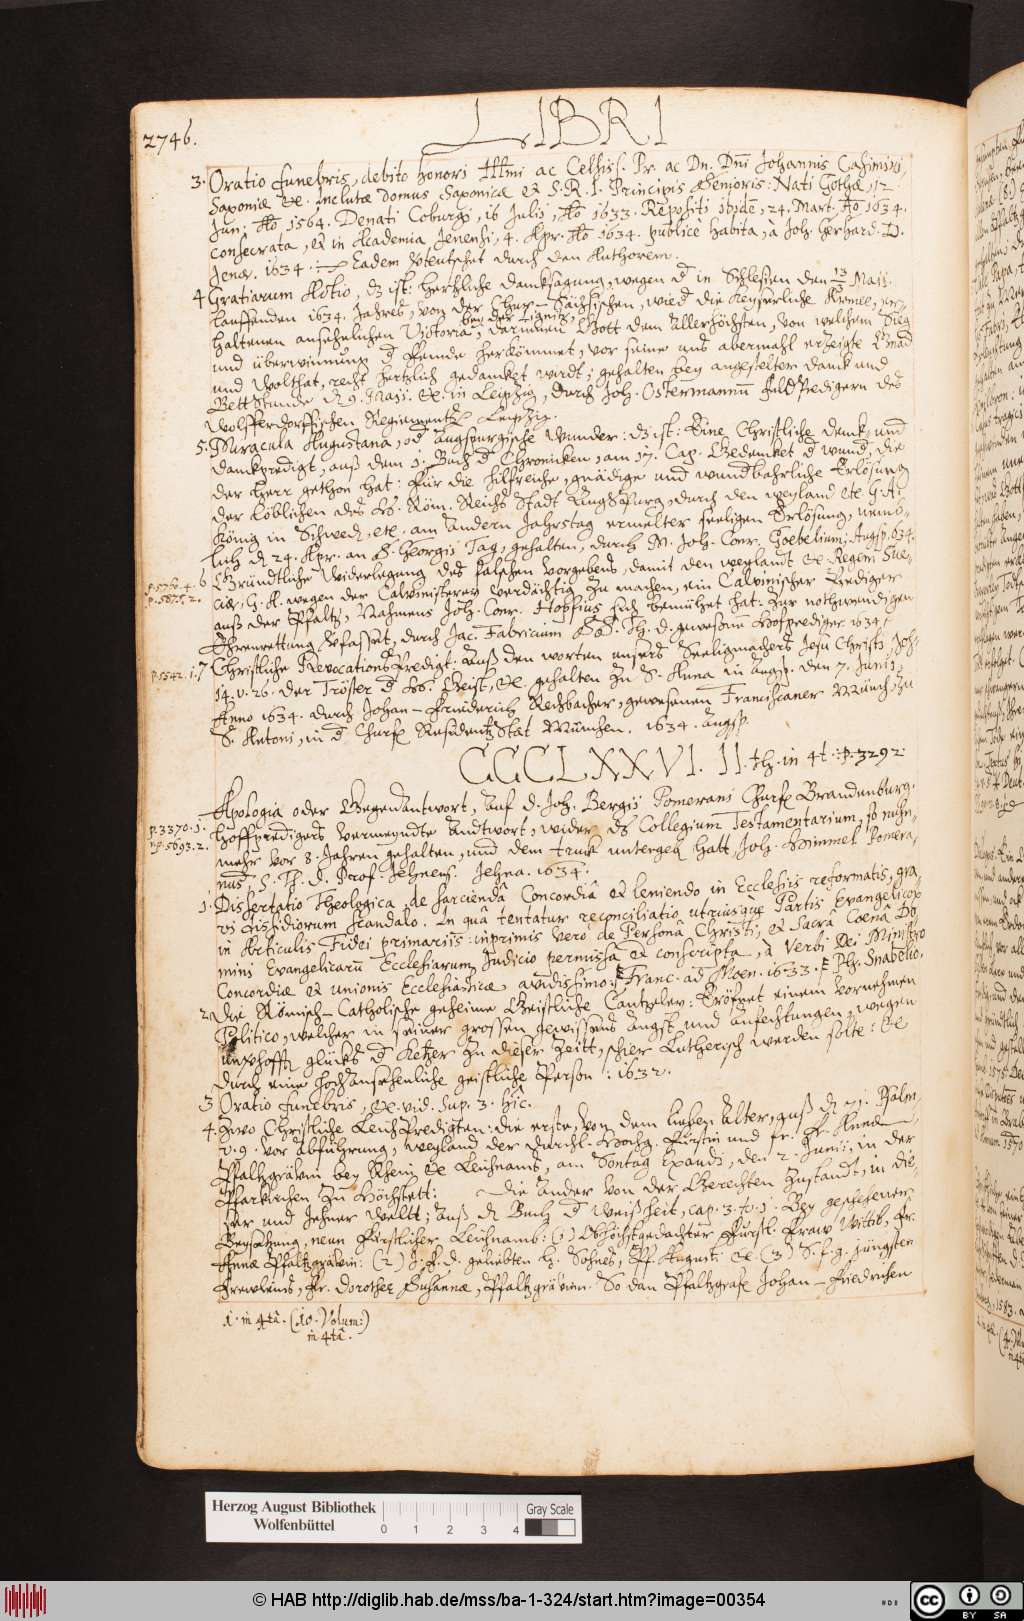 2746.
LIBRI
3. Oratio funebris, debito honori Illmi ac Celsiss. Pr. ac Dn. Dni Johannis Casimiri,
Saxoniæ &c. inclutæ domus Saxonicæ et S. R. I. Principis Senioris: Nati Gothæ, 12
Jun: Ao 1564. Denati Coburgi, 16 Julii, Ao 1633. Repositi ibide, 24. Mart. Ao 1634.
consecrata, et in Academia Jenensi, 4. Apr. Ao 1634. publice habita, à Joh. Gerhard. D.
Jenæ. 1634. Eadem Vteutschet durch den Authorem.
4 Gratiarum Actio, dz ist: hertzliche dancksagung, wegen d in Schlesien den 13/3 Maji.
lauffenden 1634. Jahres, von der Chur-Sächsischen, wied die Keyserliche Armee, er-
bey der Lignitz,
haltenen ansehnlichen Victoria, darinnen Gott dem Allerhöchsten, von welchem Sieg
und überwinnung d Feinde herkömmet, vor seine uns abermahl erzeigte Gnad
und Wolthat, recht hertzlich gedancket wirdt; gehalten bey angestelter danck und
BettStunde d 9. Maji. &c. in Leipzig, durch Joh. Ostermannũ feldPredigern des
Wolfferdorffischen Regiments. Leipzig.
5. Miracula Augustana, od Augspurgische Wunder: dz ist: Eine Christliche denck und
danckpredigt, auß dem 1. Buch d Chronicken, am 17. Cap. Gedencket d wund, die
der Herr gethon hat: für die hilfreiche, gnädige und wundbahrliche Erlösung
der löblichen des H. Röm. Reichs Stadt Augspurg, durch den weyland etc G. A.
König in Schwed, etc. am andern Jahrstag ermelter seeligen Erlösung, nemb-
lich d 24. Apr. an S. Georgii Tag, gehalten, durch M. Joh. Conr. Goebelium; Augsp. 634.
p. 5760. 4.
p. 5875. 2.
6 Gründtliche Widerlegung des falschen vorgebens, damit den weylandt &c. Regem Sue-
ciæ, G. A. wegen der Calvinisterey verdächtig zu machen, ein Calvinischer Prediger
auß der Pfaltz, Nahmens Joh. Conr. Hopfius sich bemühet hat: Zur nothwendigen
Ehrenrettung Vfasset, durch Jac. Fabricium Th. D. gewesenen Hofprediger. 1634.
p. 5542. 1.
7 Christliche RevocationsPredigt. Auß den worten unsers Seeligmachers Jesu Christi, Joh.
14. v. 26. der Tröster d H. Geist, &c. gehalten zu S. Anna in Augsp. den 7. Junii,
Anno 1634. durch Johan-Friederich Rechbacher, gewesenen Franciscaner Münch, zu
S. Antoni, in d Churf. ResidentzStat München. 1634. Augsp.
CCCLXXVI. 11. th. in 4t. p. 3292.
p. 3370. 5.
p. 5693. 2.
Apologia oder Gegenantwort, auf d. Joh. Bergii Pomerani Churf. Brandenburg.
Hoffpredigers vermeyndte Andtwort, wider ds Collegium Testamentarium, so nuhn-
mehr vor 8. Jahren gehalten, und dem truck untergeben hatt Joh. Himmel Pomera-
nus, S. Th. D. Prof. Jehnens. Jehna. 1634.
1. Dissertatio Theologica, de sarciendâ Concordiâ et leniendo in Ecclesiis reformatis, gra-
vi dissidiorum scandalo. In quâ tentatur reconciliatio utriusque Partis Evangelicor
in Articulis Fidei primariis: inprimis verò de Personâ Christi, et Sacrâ Coenâ Do-
mini Evangelicarũ Ecclesiarum Judicio permissa et conscripta, à Verbi Dei Ministro
Concordiæ et unionis Ecclesiasticæ avidissimo. Franc. ad Moen. 1633. Ph. Snabelio.
2. Die Römisch-Catholische geheime Geistliche Cantzeley: Eröfnet einem vornehmen
Politico, welcher in seiner grossen gewissens angst und anfechtungen, wegen
unverhofft glücks d Ketzer zu dieser Zeitt, schier Lutherisch werden solte: &c
durch eine hochansehenliche geistliche Person: 1632.
3 Oratio funebris, &c. vid. sup. 3. hîc.
4. Zwo Christliche LeichPredigten: die erste, von dem lieben Alter, auß d 71. Psalm,
v. 9. vor abführung, weyland der durchl. Hochg. Fürstin und fr. Fr. Annen
Pfaltzgräfin bey Rhein &c Leichnams, am Sontag Exaudi, den 2. Junii, in der
Pfarkirchen zu Höchstett: Die ander von der Gerechten zustandt, in die-
ser und Jehner Weltt; auß d Buch d Weißheit, cap. 3. to. 1. Bey geschehener
Beysetzung, neun Fürstlicher Leichnamb: (1) Obhöchstgedachter Fürstl. Fraw Wittib, Fr.
Annæ Pfaltzgräfin: (2) J. F. G. geliebten H. Sohnes, Pf. Augusti &c (3) S. f. g. jüngsten
Frewleins, Fr. Dorotheæ Susannæ, Pfaltzgräfin. So dan Pfaltzgrafe Johan-Friedrichen
1. in 4tâ. (10. Volum:)
in 4tâ.
Herzog August Bibliothek
Wolfenbüttel
0 1 2 3 4
Gray Scale
© HAB http://diglib.hab.de/mss/ba-1-324/start.htm?image=00354
cc BY SA